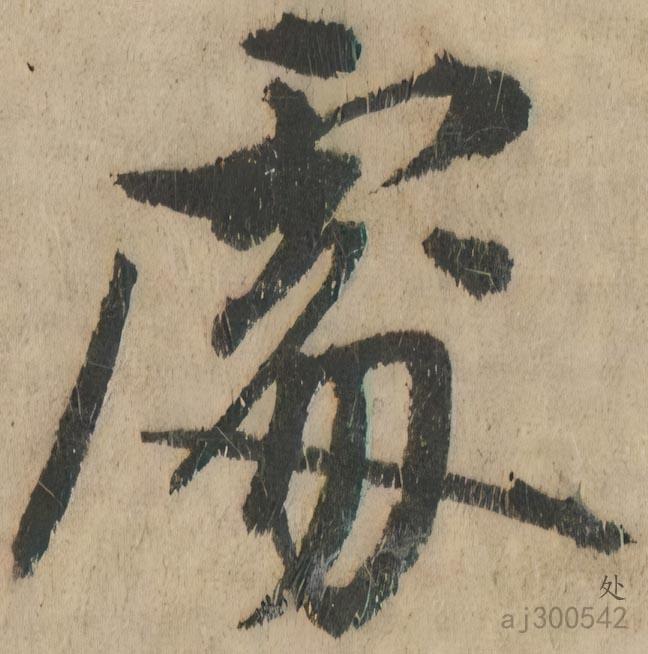 處
处
aj300542